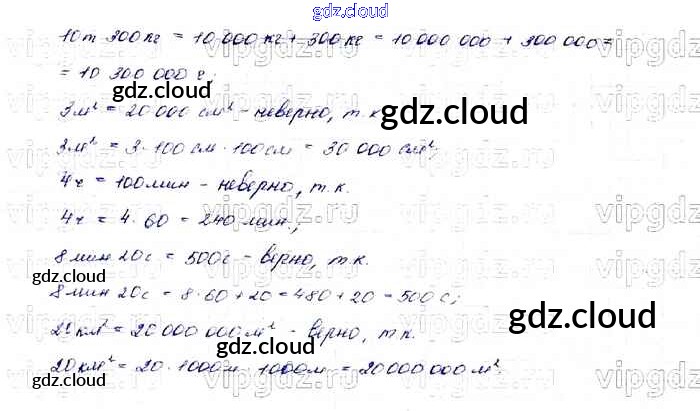 gdz.cloud
10 т 300 кг = 10 000 кг + 300 кг = 10 000 000 + 300 000 =
= 10 300 000 г;
gdz.cloud
3 м² = 20 000 см² - неверно, т.к.
gdz.cloud
3 м² = 3 · 100 см · 100 см = 30 000 см²;
4 ч = 100 мин - неверно, т.к.
4 ч = 4 · 60 = 240 мин.;
8 мин 20 с = 500 с - верно, т.к.
gdz.cloud
8 мин 20 с = 8 · 60 + 20 = 480 + 20 = 500 с;
gdz.cloud
20 км² = 20 000 000 м² - верно, т.к.
gdz.cloud
20 км² = 20 · 1000 м · 1000 м = 20 000 000 м².
gdz.cloud